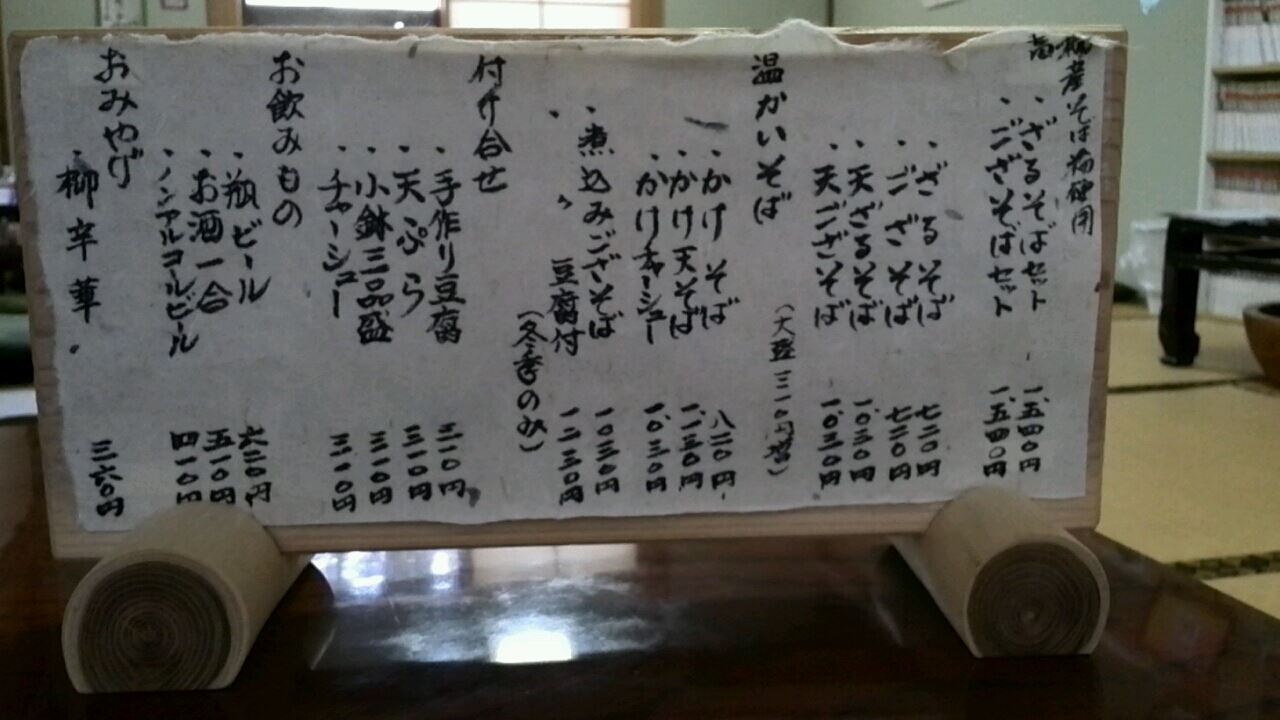 産そば
・ざるそばセット 一、五四〇円
・ござそばセット 一、五四〇円
・ざるそば 七二〇円
・ござそば 七二〇円
・天ざるそば 一、〇三〇円
・天ござそば 一、〇三〇円
(大盛三一〇円増)
温かいそば
・かけそば 八二〇円
・かけ天そば 一、一三〇円
・かけチャーシュー 一、〇三〇円
・煮込みござそば 一〇三〇円
・〃 豆腐付 一二三〇円
(冬季のみ)
付け合せ
・手作り豆腐 三一〇円
・天ぷら 三一〇円
・小鉢三品盛 三一〇円
・チャーシュー 三一〇円
お飲みもの
・瓶ビール 六二〇円
・お酒一合 五一〇円
・ノンアルコールビール 四一〇円
おみやげ
・柳辛華 三六〇円